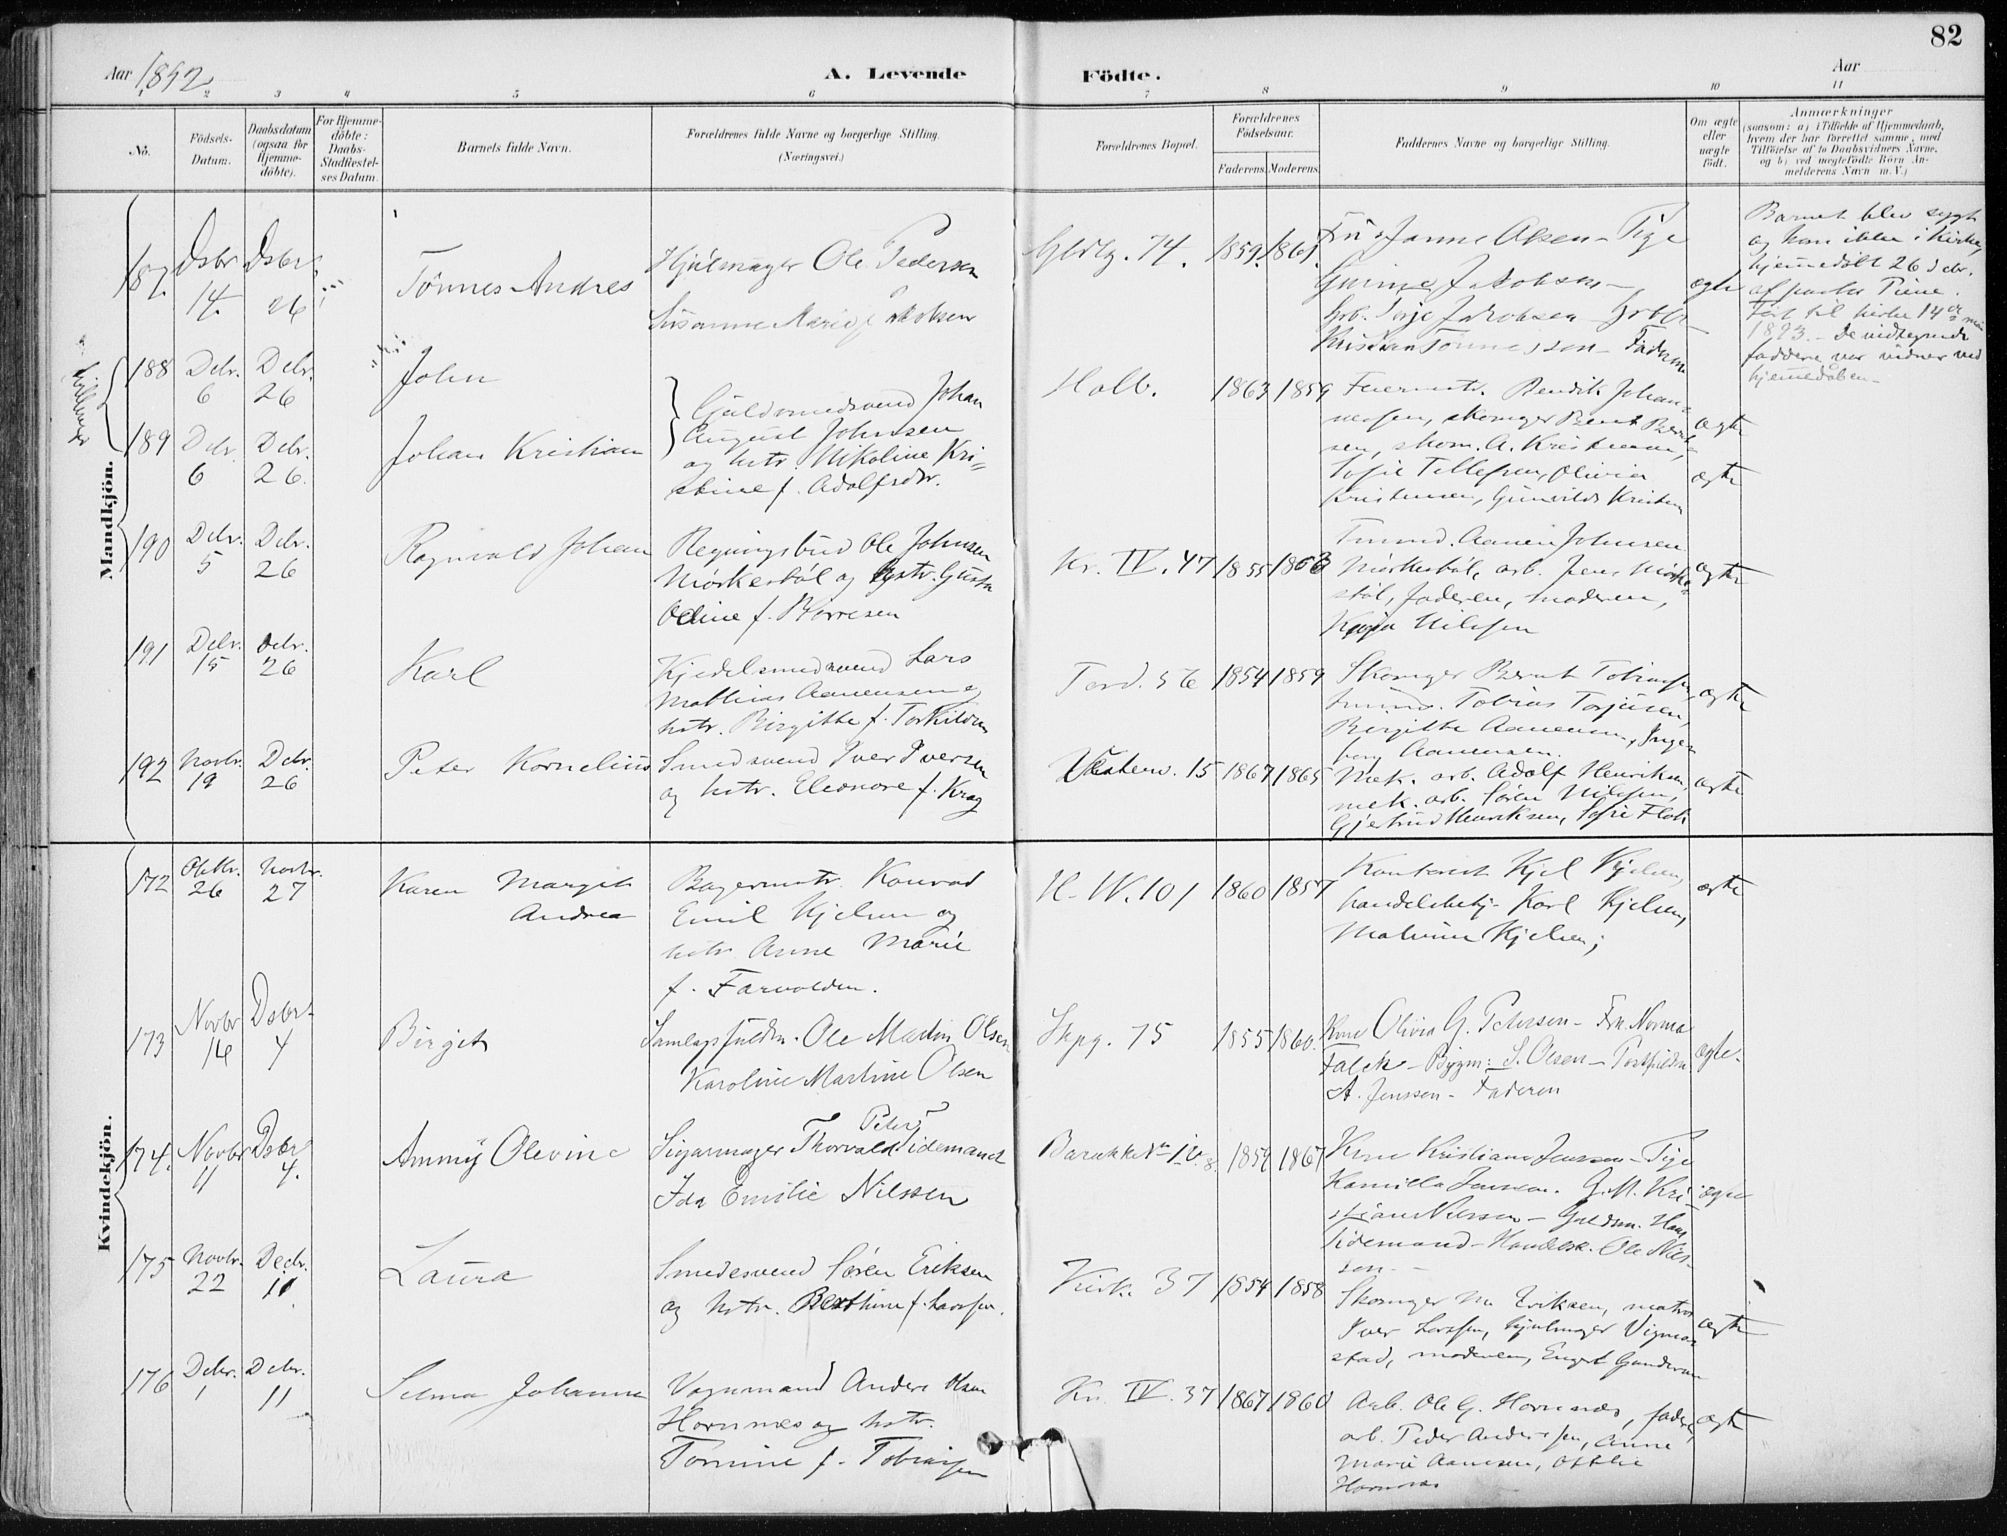 82
Aar 1892
A. Levende
Födte.
Aar
1 2 3 4 5 6 7 8 9 10 11
No.
Födsels-
Datum.
Daabsdatum
(ogsaa for
Hjemme-
döbte).
For Hjemme-
döbte:
Daabs-
Stadfæstel-
ses Datum.
Barnets fulde Navn.
Forældrenes fulde Navne og borgerlige Stilling.
(Næringsvei.)
Forældrenes Bopæl.
Forældrenes
Födselsaar.
Faderens. Moderens.
Faddernes Navne og borgerlige Stilling.
Om ægte
eller
uægte
födt.
Anmærkninger
(saasom: a) i Tilfælde af Hjemmedaab,
hvem der har forrettet samme, med
Tilföielse af to Daabsvidners Navne,
og b) ved uægtefödte Börn An-
melderens Navn m. V.)
Mandkjön.
187. Dsbr 14. Dsbr. 26
Tönnes Andres
Hjulmager Ole Pedersen
Susanne Marie f. Jakobsen
74. 1859. 1861.
Frü Janne Olsen - Pige
Gurine Jakobsen -
Arb. Terje Jakobsen -
Kristian Tönnessen - Faderen
ægte
Barnet blev sygt
og kom ikke i Kirke,
hjemmedöbt 26 Debr.
af pastor Tiene.
Ført til kirke 14de mai
1893. - De vidtegnede
faddere var vidner ved
hjemedåben -
188 Debr. 6 Debr. 26
John
Guldsmedsvend Johan
August Johnsen
og hstr. Nikoline Kri-
stine f. Adolfsdtr.
Holb. 1863 1859
Feiermstr. Bendik Johan-
nessen, skomager Bernt Bernt-
sen, skom. A. Kristensen,
Sofie Tellefsen, Olivia
Kristensen, Gunvilds Kristen
ægte
189 Debr. 6 Debr. 26.
Johan Kristian
ægte
190 Debr. 5 Debr. 26
Ragnvald Johan
Regningsbud Ole Johnsen
Mörkestöl og hstr. Gusta
Odine f. Borresen
Kr. IV. 47 1855 1863
Tmmd. Aanen Johnsen
Mörkestöl, arb. Jens Mörke-
stöl, faderen, moderen,
Kaja Nilssen
ægte
191 Debr. 15 Debr. 26
Karl
Kjedelsmedsvend Lars
Mathias Aanensen og
hstr. Birgitte f. Torkildsen
Tord. 56 1854 1859
Skomager Bernt Tobiassen,
Tobias Torjusen,
Birgitte Aanensen, Inge-
borg Aanensen.
ægte
192 Novbr. 19 Debr. 26
Peter Kornelius
Smedsvend Iver Iversen
og hstr. Eleonore f. Krag
Vesterv. 15 1867 1865
Mek. arb. Adolf Henriksen,
mek. arb. Sören Nilssen,
Gjertrud Henriksen, Sofie Flak
ægte
Kvindekjön.
172 Oktbr. 26 Novbr. 27
Karen Margit
Andrea
Bagermstr. Konrad
Emil Kjelsen og
hstr Anne Marie
f. Farvolden.
H. W. 101 1860 1857
Kontorist Kjel Kjelsen,
handelsbetj. Karl Kjelsen,
Malvine Kjelsen;
ægte
173 Novbr 14 Dsbr 4
Birgit
Samlagsfuldm. Ole Martin Olsen
Karoline Martine Olsen
Skpg. 75 1855 1860.
Kone Olivia G. Petersen - Frk. Norma
Falck - Bygm: S. Olsen - Postfuldm
A. Jenssen - Faderen
ægte.
174. Novbr 11 Dsbr 4.
Ammy Olevine
Peter
Sigarmager Thorvald Tidemand
Ida Emilie Nilssen
Barakkedn IV. 8. 1859 1867
Kone Kristiane Jenssen - Pige
Kamilla Jenssen. G. M. Kri-
stian Nilssen - Guldsm. Hans
Tidemand - Handelsk. Ole Nils-
sen -
ægte
175 Novbr. 22 Decbr. 11
Laura
Smedesvend Sören Eriksen
og hstr. Berthine f. Larssen.
Kirk. 37 1854 1858
Skomager Eriksen, matros
Iver Larssen, hjulmager Vigmo-
stad, moderen, Engel Gundersen
ægte
176 Debr. 1 Debr. 11
Selma Johanne
Vognmand Anders Olsen
Hornnes og hstr.
Tomine f. Tobiassen
Kr. IV. 37 1867 1860
Arb. Ole G. Hornnæs, faderen,
arb. Peder Anderssen, Anne
Marie Aanesen, Otthie
Hornnæs
ægte